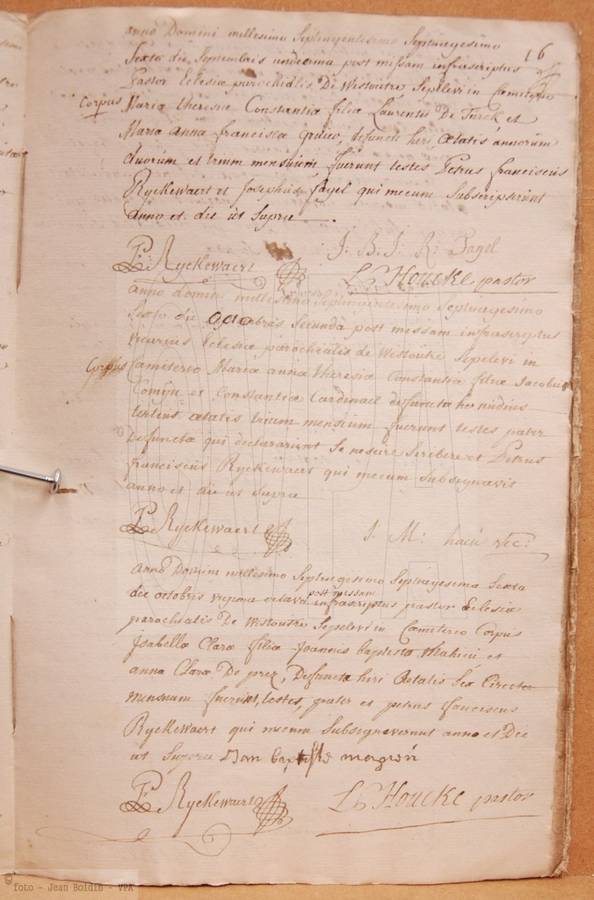 anno Domini millesimo Septingentesimo Septuagesimo
16
Sexto die Septembris undecima post missam infrascriptus
Pastor Eclesia parochialis De Westoutre Sepelevi in Cemeterio
Corpus Maria theresie Constantia filia Laurentii De Turck et
Maria Anna francisca defuncti heri Ætatis annorum
duorum et trium mensium, fuerunt testes Petrus franciscus
Ryckewaert et Josephus fagel qui mecum Subscripserunt
Anno et die ut Supra
P. Ryckewaert J. B. J. R. Bagel
L. Houcke pastor
anno domini millesimo Septingentesimo Septuagesimo
Sexto die Octobris Secunda post missam infrascriptus
vicarius Eclesiæ parochialis de Westoutre Sepelevi in
Corpus Cameterio Maria anna theresia Constantia filia Jacobus
Comijn et Constantia Cardinael defuncta nudius
tertius ætatis trium mensium fuerunt testes pater
defuncta qui declararunt Se nescire Scribere et Petrus
franciscus Ryckewaert qui mecum Subsignavit
anno et die ut Supra
P. Ryckewaert J. M:
Anno Domini millesimo Septuagesimo Sexta
die octobris vigesima octava post missam infrascriptus pastor Eclesia
parochialis De Westoutre Sepelivi in Cœmiterio Corpus
Isabella Clara filia Joannis baptista Mahieu et
anna Clara De prez, Defuncta heri Ætatis Sex Circiter
mensuum fuerunt testes, pater et petrus franciscus
Ryckewaert qui mecum Subsignaverunt anno et Die
ut Supra Jan baptiste
P. Ryckewaert L. Houcke pastor
© foto - Jean Boldin - VPA